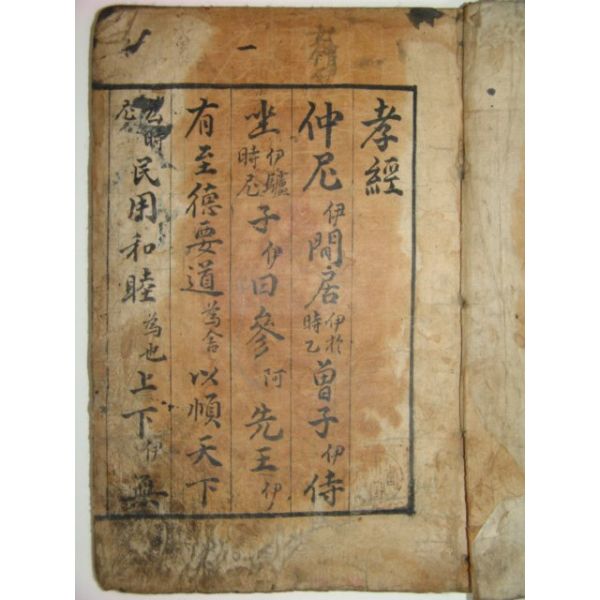 孝經
仲尼伊間居伊於時乙曾子伊侍
坐伊驢時尼子伊曰參阿先王伊
有至德要道為舍以順天下
時尼民用和睦為也上下伊無